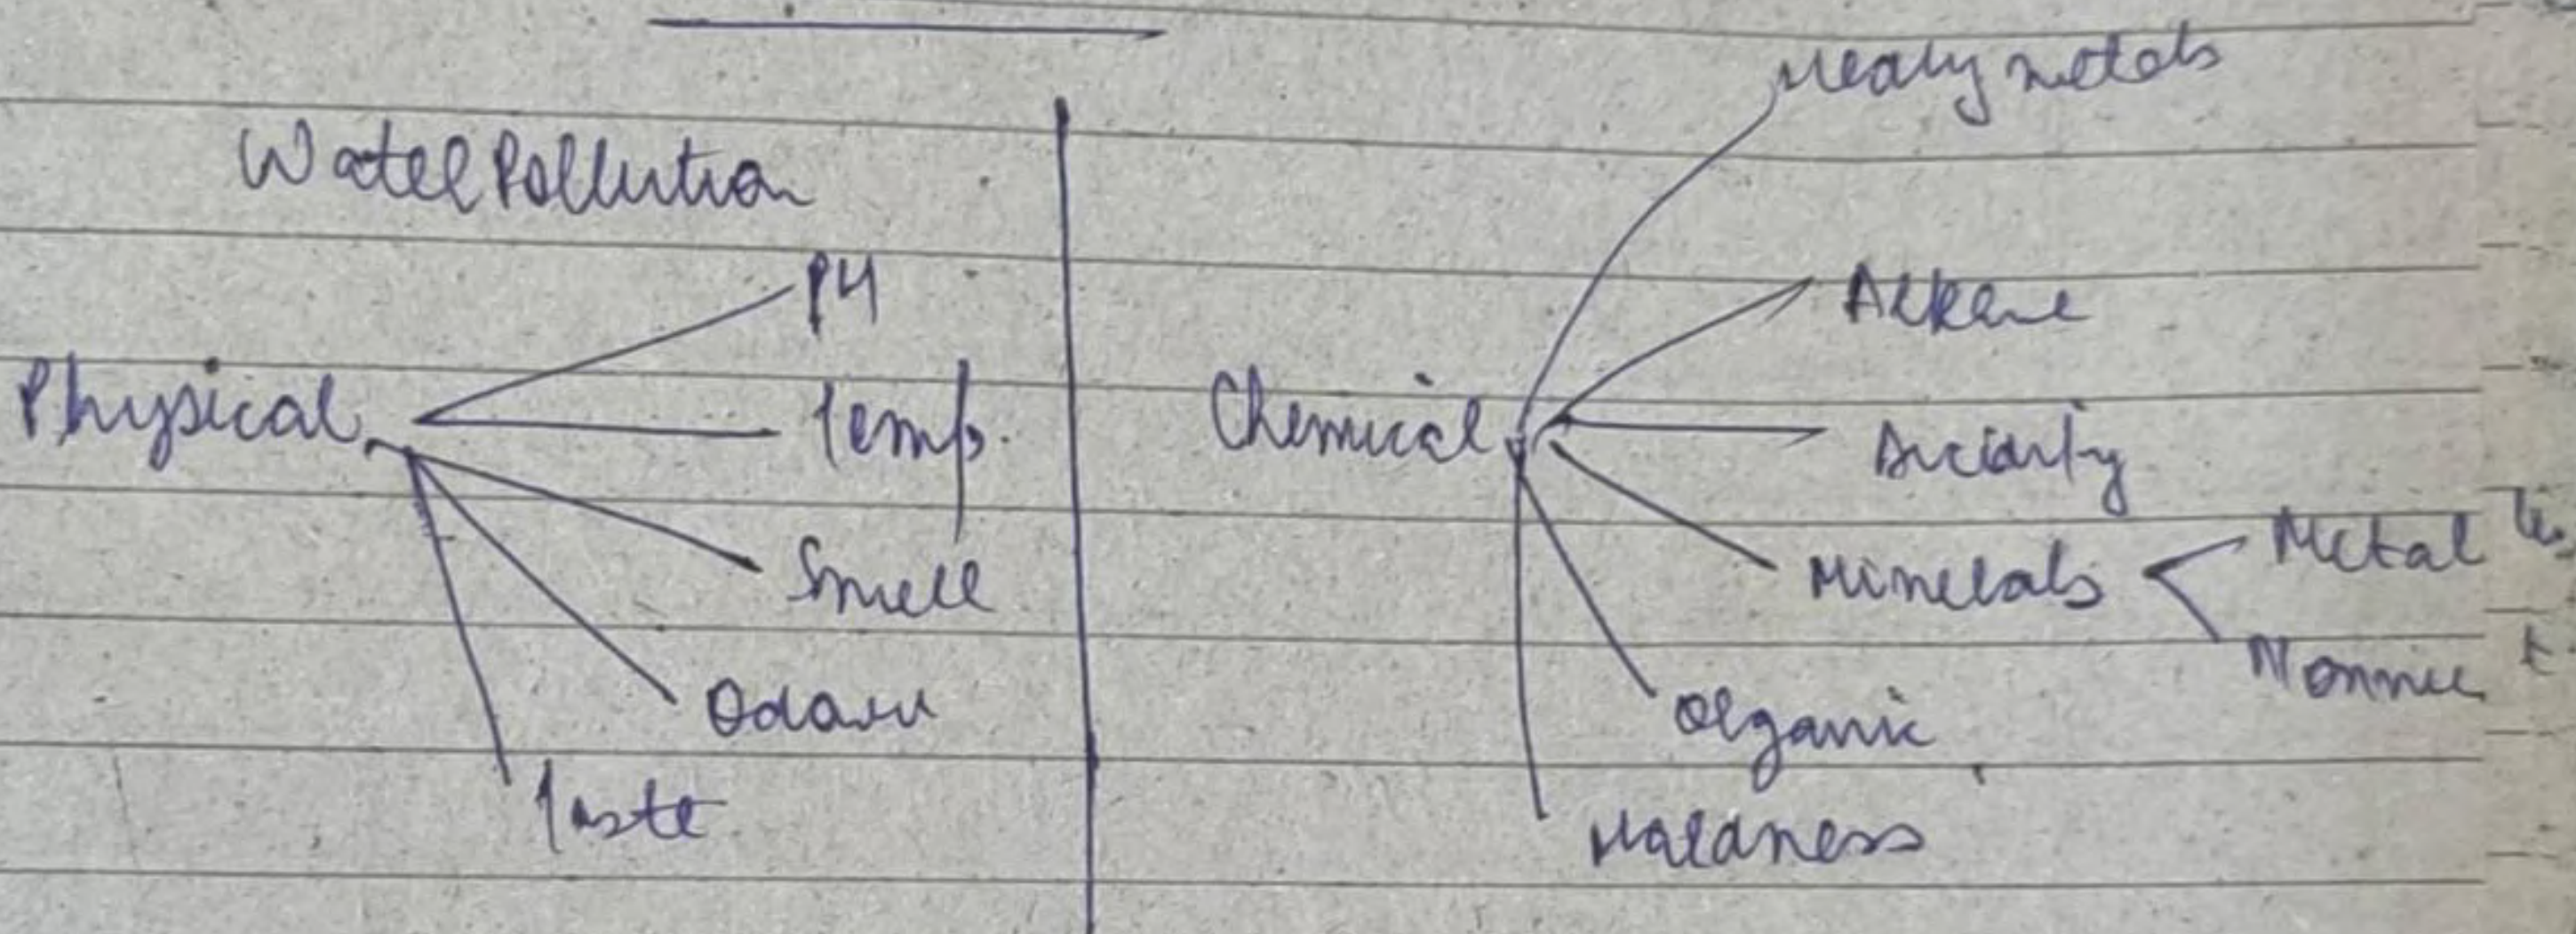 Water Pollution
Physical
PH
Temp.
Smell
Odour
Taste
Chemical
Heavy metals
Alkane
Minerals
Metal
Organic
Hardness